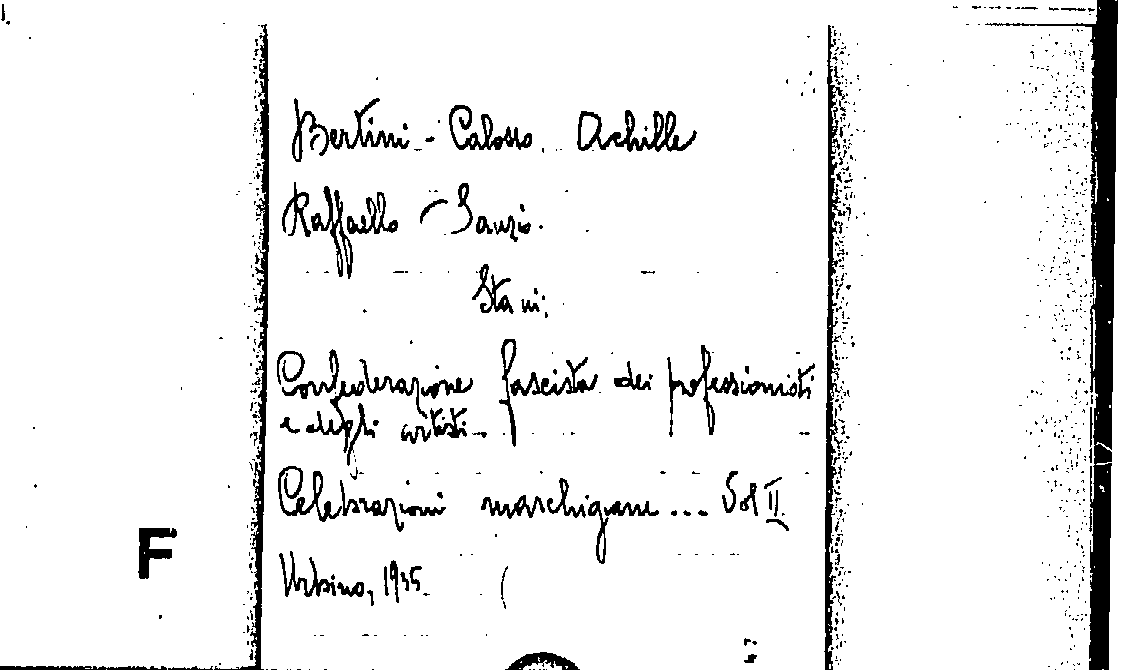 Bertini - Calosso Achille
Raffaello Sanzio.
Sta in:
Confederazione fascista dei professionisti
e degli artisti.
Celebrazioni marchigiane... Vol II
Urbino, 1935.
F